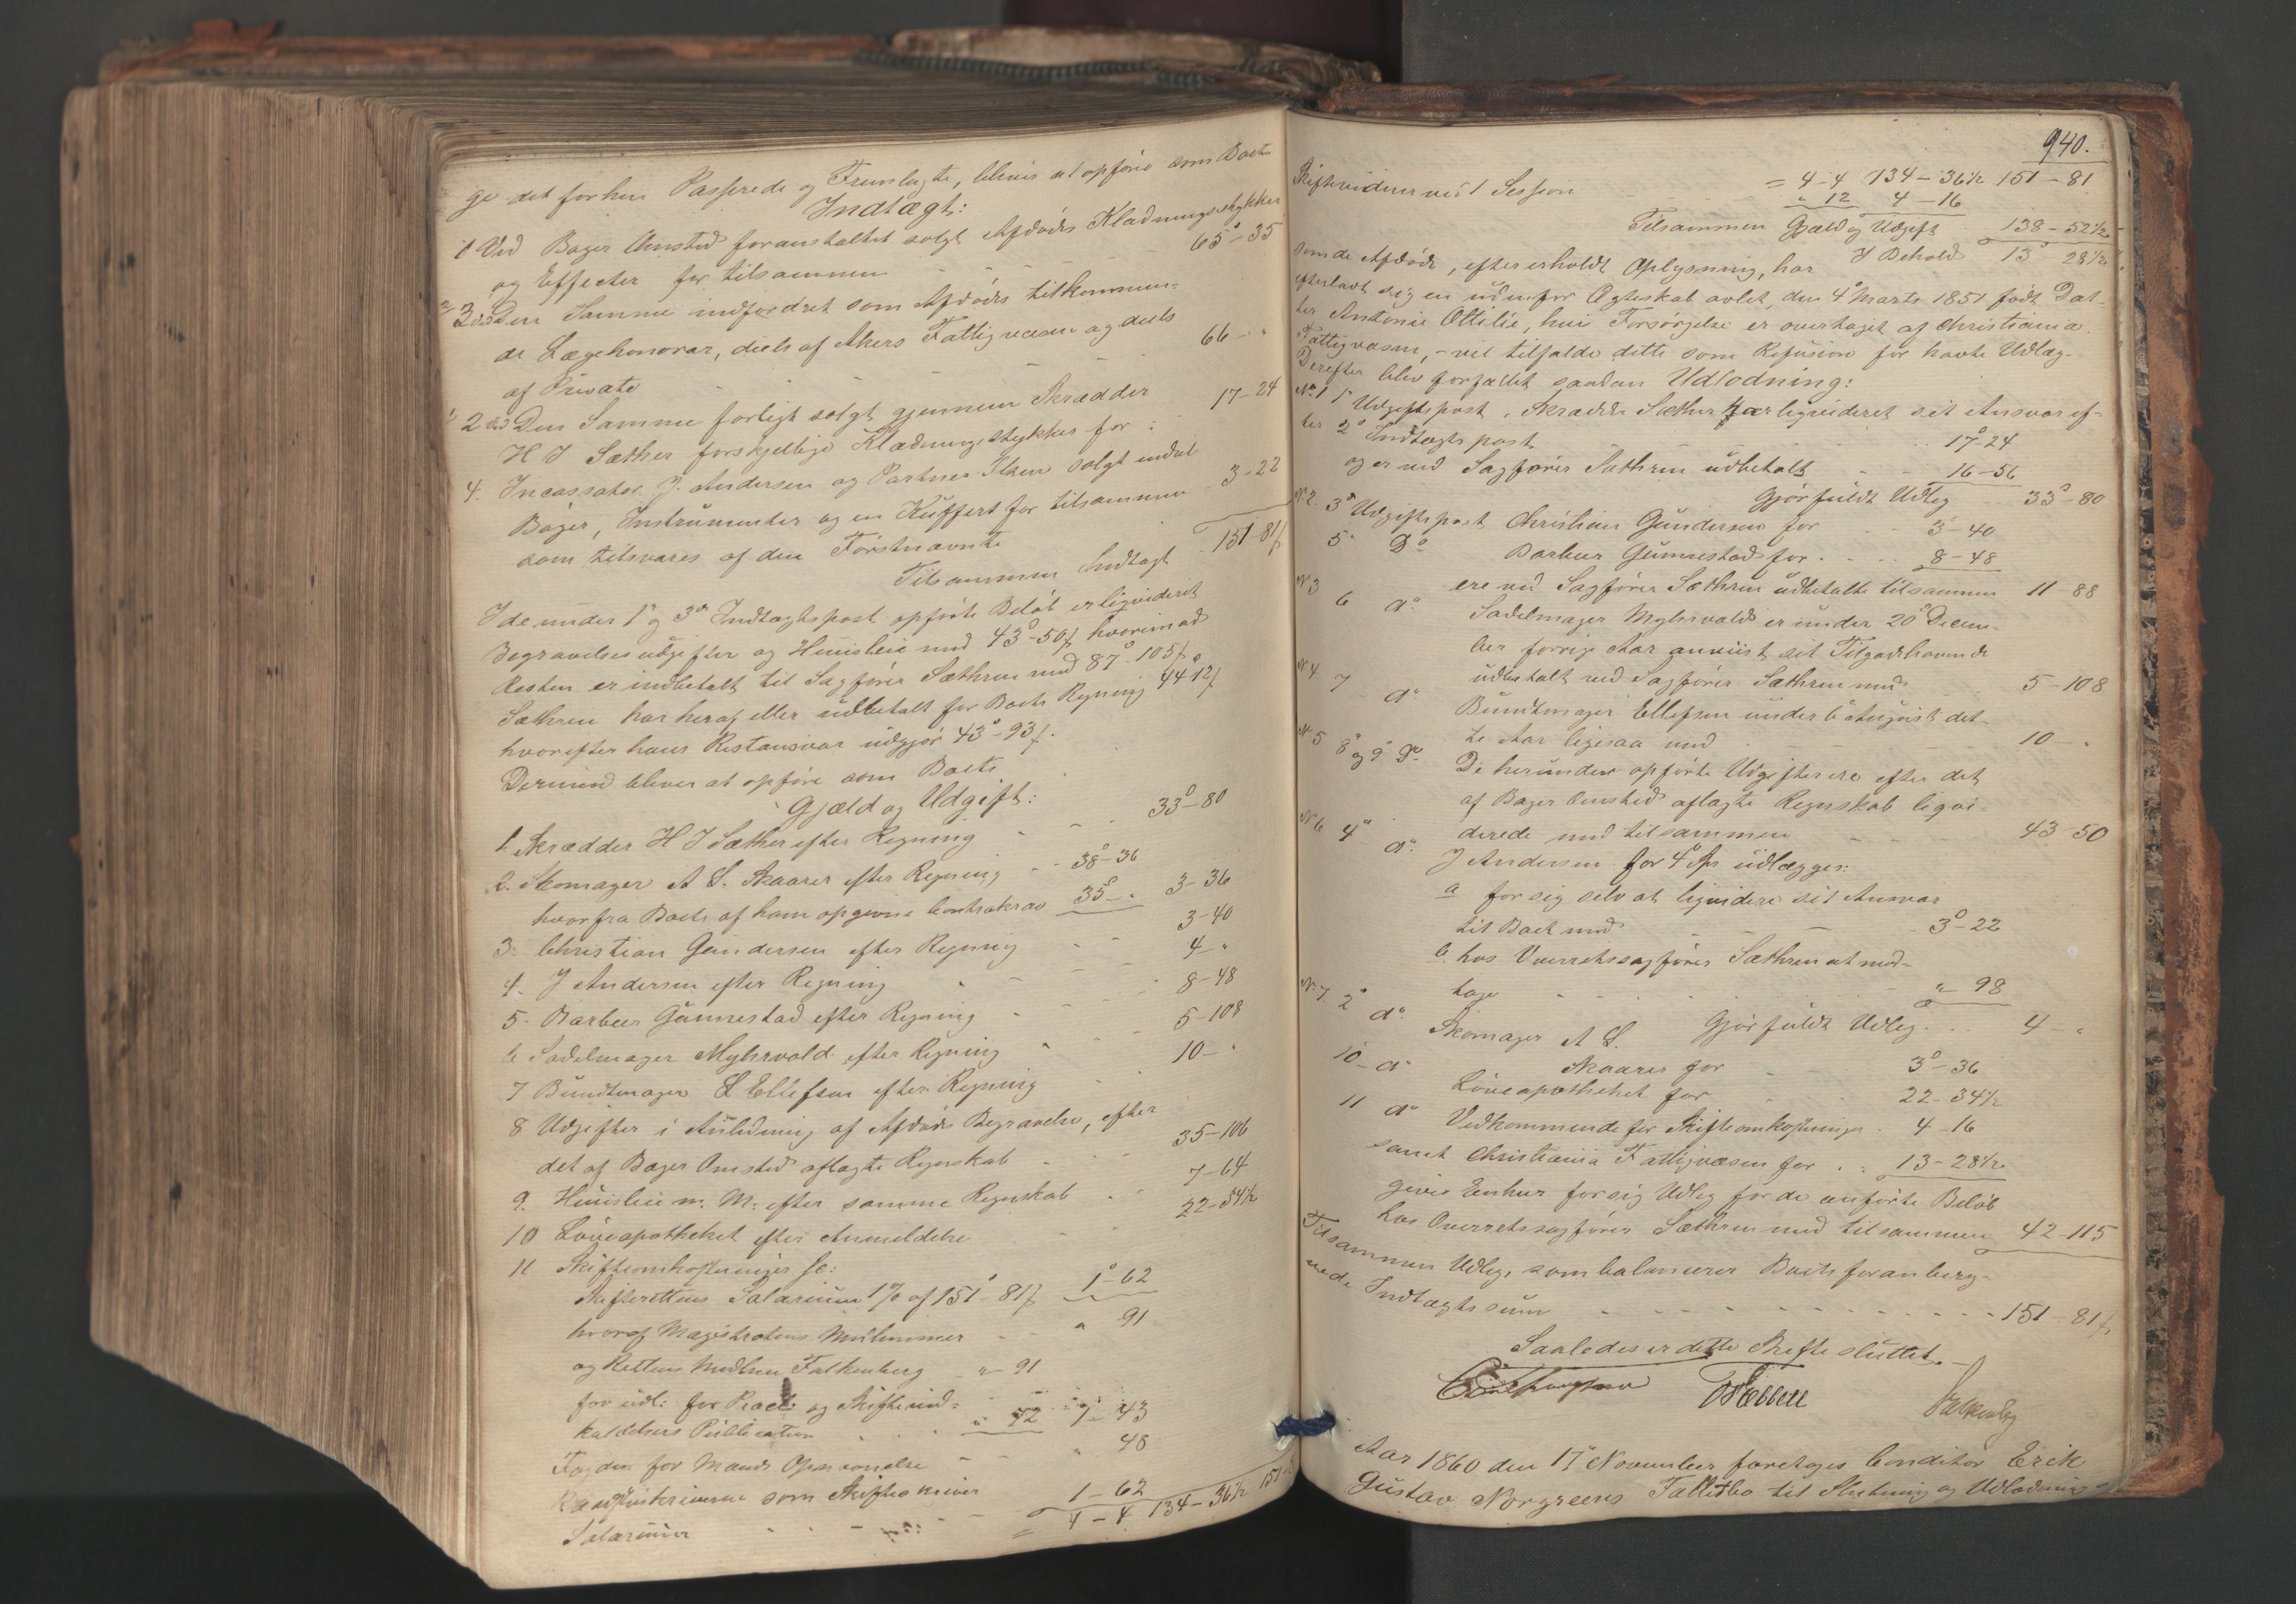 ge det forhen Passerede og Fremlagte, blives at opføre som Boets
Indtægt:
1 Ved Bager Omsted foranstaltet solgt Afdødes Klædningsstykker
og Effecter for tilsammen - - - 65-35
3 ved Den Samme indfordret som Afdødes tilkommen-
de Lægehonorar, deels af Akers Fattigvæsen og deels
af Private - - - 66 - "
2 ved Den Samme forligt solgt gjennem Skrædder
H J Sæther forskjellige Klædningsstykker for : 17-24
4. Incassator J. Andersen og Partner Olsen solgt endel
Bøger, Instrumenter og en Kuffert for tilsammen - 3-22
som tilsvares af den Førstnævnte
Tilsammen Indtægt - 151-81ß
I de under 1ste og 3die Indtægtspost opførte Beløb er liqvideret
Begravelsesudgifter og Huusleie med 43-50ß hvorimod
Resten er indbetalt til Sagfører Sæthren med 87-105ß
Sæthren har heraf eller udbetalt for Boets Regning 44-12ß
hvorefter hans Restansvar udgjør 43-93ß.
Dermed bliver at opføre som Boets
Gjæld og Udgift:
1. Skrædder H J Sæther efter Regning - - - 33-80
2. Skomager A L. Skaarer efter Regning - - 38-36
hvorfra Boets af ham opgivne Contrakrav 35- " 3-36
3. Christian Gundersen efter Regning - - 3-40
4. J Andersen efter Regning - - - 4 "
5. Barbeer Gunnestad efter Regning - - 8-48
6 Sadelmager Myhrvold efter Regning - - 5-108
7 Bundtmager L Ellefsen efter Regning - - 10- "
8 Udgifter i Anledning af Afdødes Begravelse, efter
det af Bager Omsted aflagte Regnskab - - 35-106
9. Huusleie m. M. efter samme Regnskab - - 7-64
10 Løveapotheket efter Anmeldelse - 22-34½
11 Skifteomkostninger Sc:
Skifterettens Salarium 1% af 151-81ß 1-62
hvoraf Magistratens Medlemmer - - " 91
og Rettens Medlem Falkenberg - " 91
for udl: for Procl: og Skifteind-
kaldelsers Publication - - - " 72 1-43
Fogden for Mænds Opnævnelse - - " 48
som Skifteskriver
Salarium - - - 1-62
= 4-4 134-36½ 151-81
940.
Skiftevidner ved 1 Session - - = 4-4 134-36½ 151-81
" 12 4-16
Tilsammen Gjæld og Udgift 138-52½
I Behold 13 28½
som de Afdøde, efter erholdt Oplysning, har
efterladt sig en udenfor Ægteskab avlet, den 4de Marts 1851 født Dat-
ter Antonie Ottilie, hvis Forsørgelse er overtaget af Christiania
Fattigvæsen, - vil tilfalde dette som Refusion for havte Udlæg.
Derefter blev forfattet saadan Udlodning:
No 1 1ste Udgiftspost. Skrædder Sæther har liqvideret sit Ansvar ef-
ter 2den Indtægtspost - - - 17-24
og er ved Sagfører Sæthren udbetalt - - 16-56
Gjør fuldt Udlæg - 33-80
No 2. 3die Udgiftspost Christian Gundersen for - 3-40
5. Do Barbeer Gunnestad for - - 8-48
ere ved Sagfører Sæthren udbetalte tilsammen 11-88
No 3 6 do Sadelmager Myhrvold er under 20de Decem-
ber forrige Aar anviist sit Tilgodehavende
udbetalt ved Sagfører Sæthren med - - 5-108
No 4 7 do Bundtmager Ellefsen under 6 August det-
te Aar ligesaa med - - - 10- "
No 5 8de og 9de Do De herunder opførte Udgifter ere efter det
af Bager Omsted aflagte Regnskab liqvi-
derede med tilsammen - - - 43-50
No 6 4de do J Andersen for 4 Sp udlægges:
a for sig selv at liqvidere sit Ansvar
til Boet med - - - 3-22
b. hos Overretssagfører Sæthren at mod-
tage - - - " 98
Gjør fuldt Udlæg - - 4- "
No 7 2den do Skomager A L.
Skaarer for - 3-36
10 do Løveapotheket for - - 22-34½
11 do Vedkommende for Skifteomkostninger - 4-16
samt Christiania Fattigvæsen for - : 13-28½
gives Enhver for sig Udlæg for de anførte Beløb
hos Overretssagfører Sæthren med tilsammen 42-115
Tilsammen Udlæg, som balancerer Boets foran bereg-
nede Indtægtssum - - - 151-81ß
Saaledes er dette Skifte sluttet. -
Falkenberg
Aar 1860 den 17de November foretoges Conditor Erik
Gustav Norgreens Fallitbo til Slutning og Udlodning -